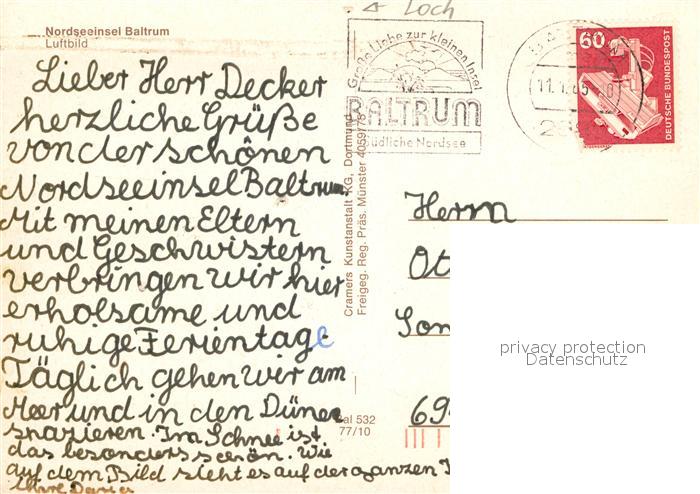 Loch
Nordseeinsel Baltrum
Luftbild
Große Liebe zur kleinen Insel
BALTRUM
südliche Nordsee
60
DEUTSCHE BUNDESPOST
Lieber Herr Decker
herzliche Grüße
von der schönen
Nordseeinsel Baltrum.
Mit meinen Eltern
und Geschwistern
verbringen wir hier
erholsame und
ruhige Ferientage
Täglich gehen wir am
Meer und in den Dünen
spazieren. Im Schnee ist
das besonders schön. Wie
auf dem Bild sieht es auf der ganzen I
Ihre
Cramers Kunstanstalt KG, Dortmund
Freigeg. Reg. Präs. Münster 4059/78
Bal 532
77/10
Herrn
Ot
Son
69
privacy protection
Datenschutz